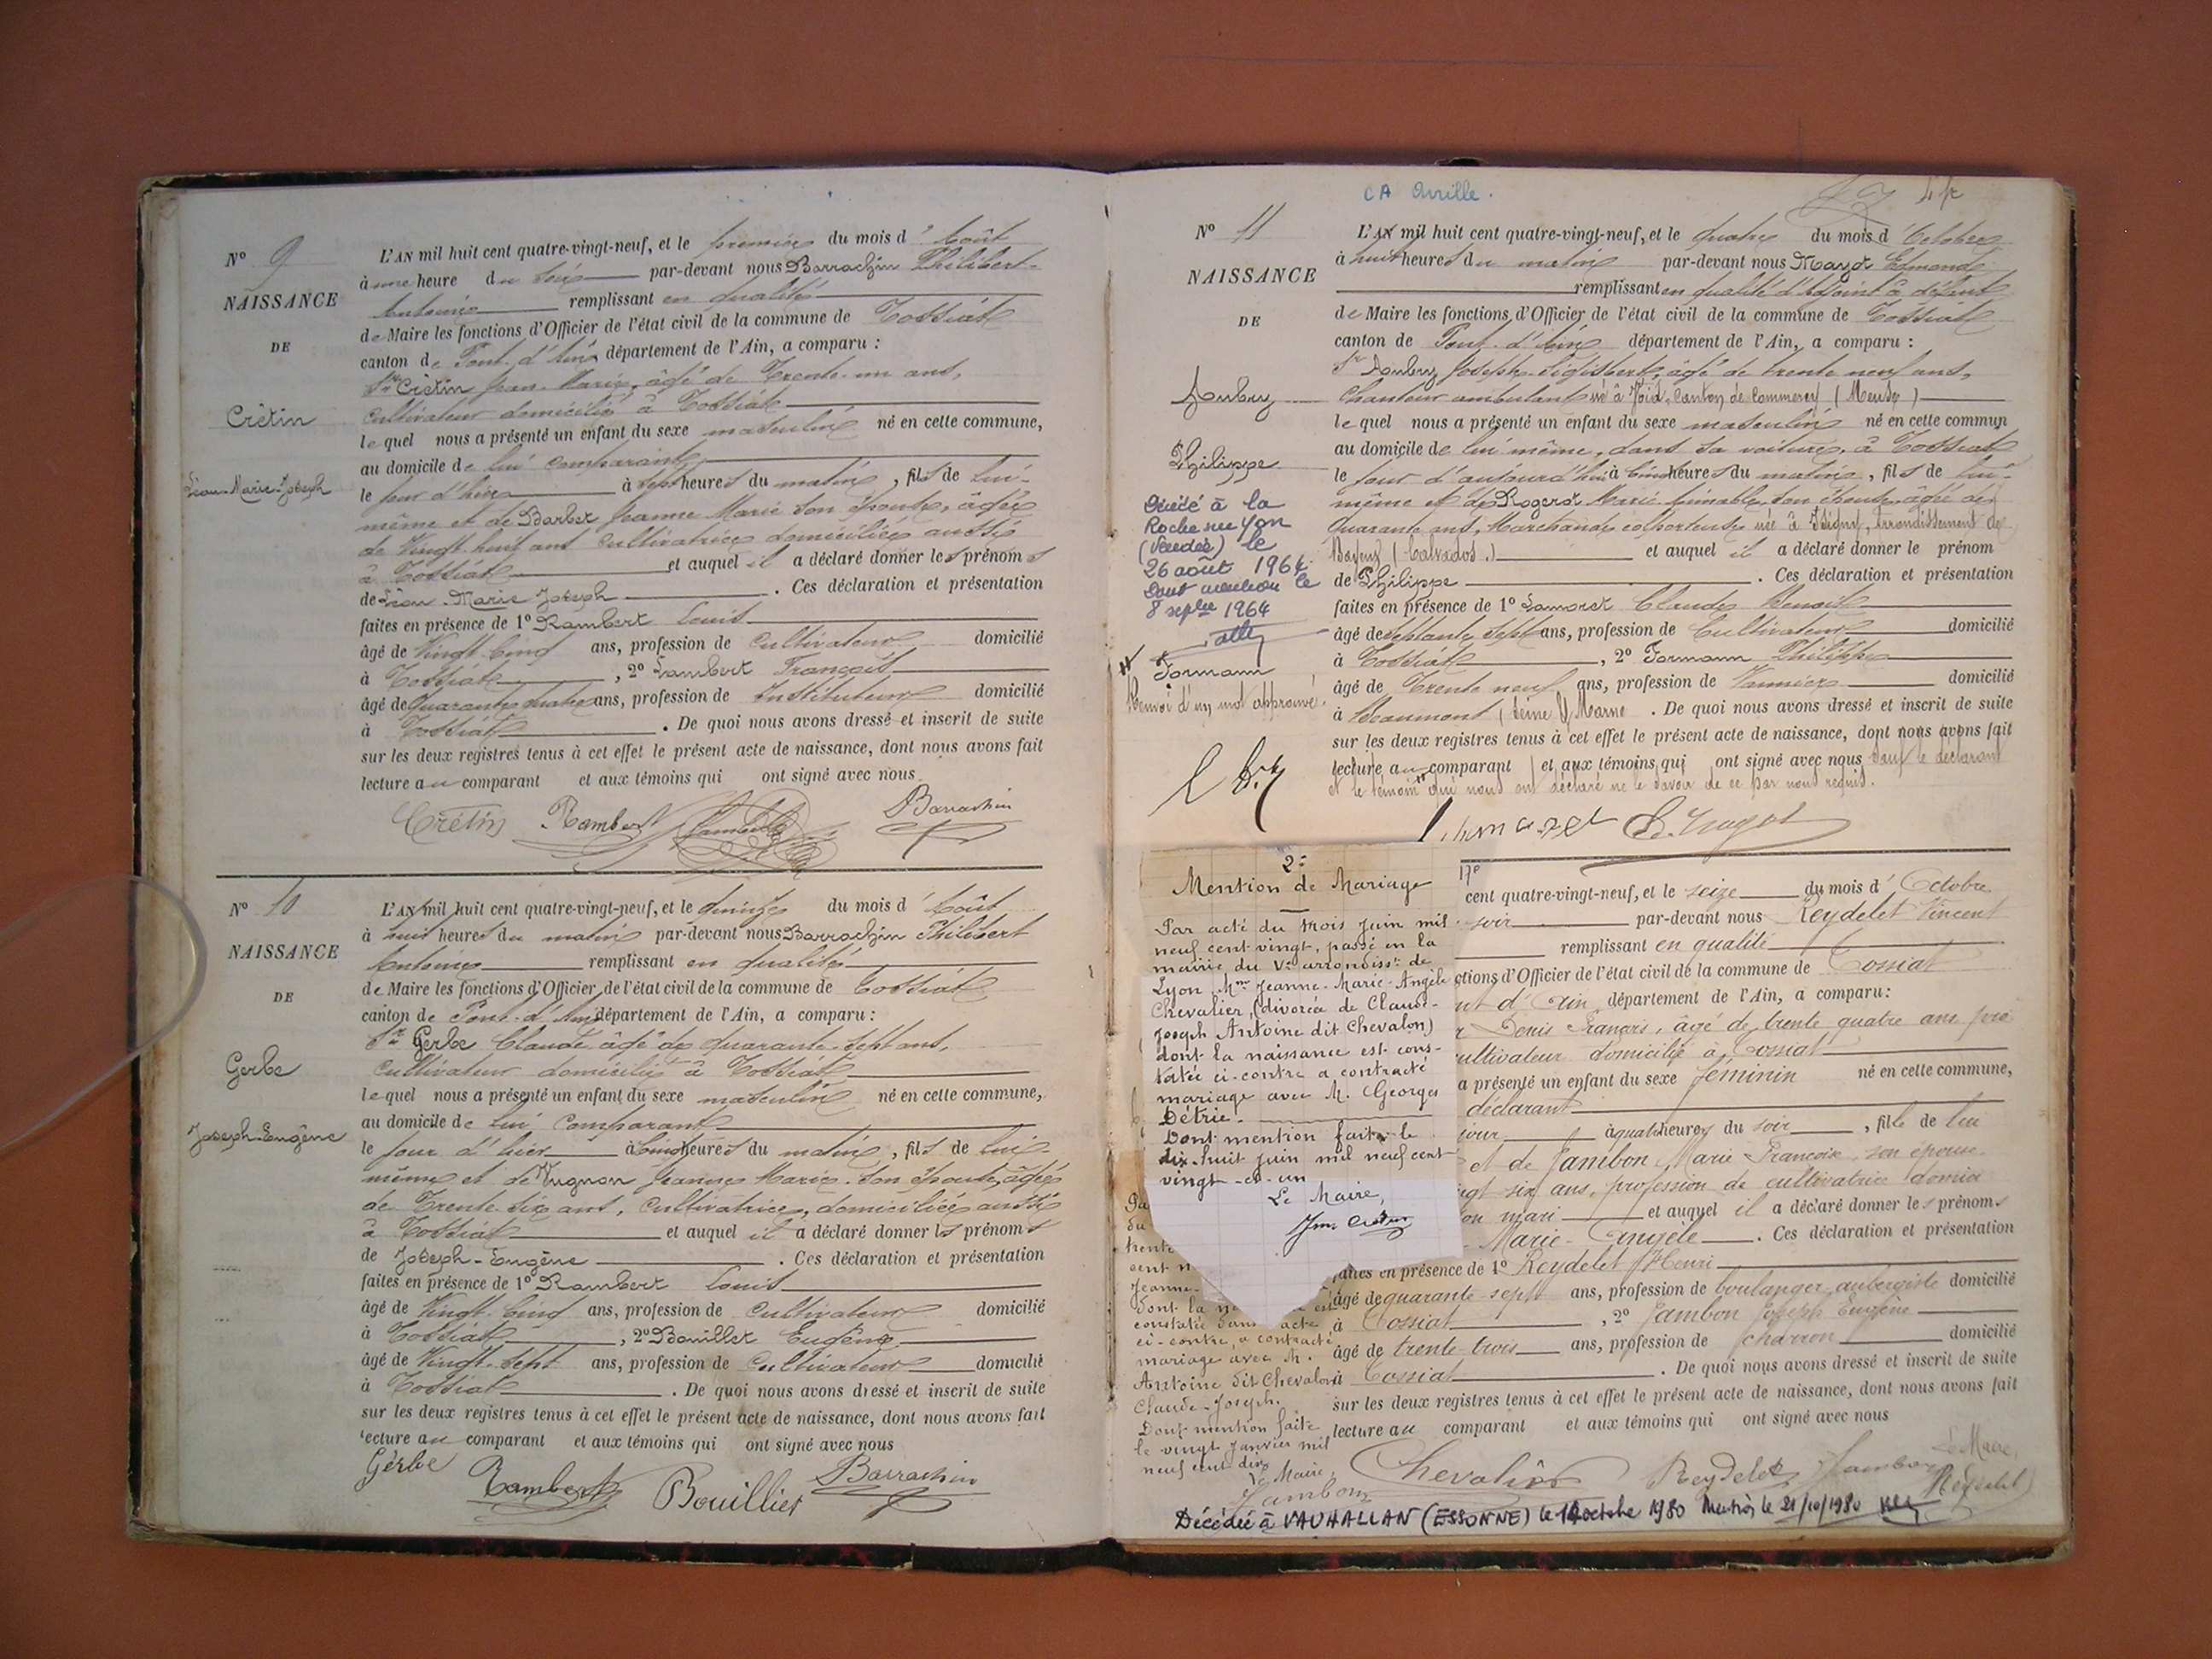 Nº 9
NAISSANCE
DE
Crétin
Léon-Marie-Joseph
L'AN mil huit cent quatre-vingt-neuf, et le premier du mois d'Août
à une heure du soir par-devant nous Barrachin Philibert-
Antoine remplissant en qualité
de Maire les fonctions d'Officier de l'état civil de la commune de Tossiat
canton de Pont-d'Ain département de l'Ain, a comparu :
Sr Crétin Jean-Marie, âgé de Trente-un ans,
Cultivateur domicilié à Tossiat
lequel nous a présenté un enfant du sexe masculin né en cette commune,
au domicile de lui comparant
le jour d'hier à sept heures du matin, fils de lui-
même et de Barbet Jeanne Marie son épouse, âgée
de Vingt-huit ans Cultivatrice domiciliée aussi
à Tossiat et auquel il a déclaré donner les prénoms
de Léon-Marie Joseph . Ces déclaration et présentation
faites en présence de 1º Rambert Louis
âgé de Vingt-Cinq ans, profession de Cultivateur domicilié
à Tossiat , 2º Lambert François
âgé de Quarante quatre ans, profession de Instituteur domicilié
à Tossiat . De quoi nous avons dressé et inscrit de suite
sur les deux registres tenus à cet effet le présent acte de naissance, dont nous avons fait
lecture au comparant et aux témoins qui ont signé avec nous
Crétin Rambert Lambert Barrachin
Nº 10
NAISSANCE
DE
Gerbe
Joseph-Eugène
L'AN mil huit cent quatre-vingt-neuf, et le quinze du mois d'Août
à huit heures du matin par-devant nous Barrachin Philibert
Antoine remplissant en qualité
de Maire les fonctions d'Officier de l'état civil de la commune de Tossiat
canton de Pont-d'Ain département de l'Ain, a comparu :
Sr Gerbe Claude âgé de quarante-sept ans,
Cultivateur domicilié à Tossiat
lequel nous a présenté un enfant du sexe masculin né en cette commune,
au domicile de lui Comparant
le jour d'hier à Cinq heures du matin, fils de lui-
même et de Vugnon Jeanne Marie son épouse, âgée
de Trente-six ans, Cultivatrice, domiciliée aussi
à Tossiat et auquel il a déclaré donner les prénoms
de Joseph-Eugène . Ces déclaration et présentation
faites en présence de 1º Rambert Louis
âgé de Vingt-Cinq ans, profession de Cultivateur domicilié
à Tossiat , 2º Bouillet Eugène
âgé de Vingt-Sept ans, profession de Cultivateur domicilié
à Tossiat . De quoi nous avons dressé et inscrit de suite
sur les deux registres tenus à cet effet le présent acte de naissance, dont nous avons fait
lecture au comparant et aux témoins qui ont signé avec nous
Gerbe Rambert Bouillier Barrachin
CA
Nº 11
NAISSANCE
DE
Aubry
Philippe
Décédé à la
Roche sur Yon
(Vendée) le
26 août 1964.
Dont mention le
8 septbre 1964
Formann
Renvoi d'un mot approuvé.
L'AN mil huit cent quatre-vingt-neuf, et le quatre du mois d'Octobre
à huit heures du matin par-devant nous Mayot Edmond
remplissant en qualité d'Adjoint à défaut
de Maire les fonctions d'Officier de l'état civil de la commune de Tossiat
canton de Pont-d'Ain département de l'Ain, a comparu :
Sr Aubry Joseph-Sigisbert, âgé de trente neuf ans,
Chanteur ambulant né à Void, Canton de Commercy (Meuse)
lequel nous a présenté un enfant du sexe masculin né en cette commun
au domicile de lui même, dans sa voiture, à Tossiat
le jour d'aujourd'hui à Cinq heures du matin, fils de lui-
même et de Rogerot Marie Aimable, son épouse âgée de
Quarante ans, Marchande colporteuse née à Isigny, Arrondissement de
Bayeux (Calvados.) et auquel il a déclaré donner le prénom
de Philippe . Ces déclaration et présentation
faites en présence de 1º Lamoret Claude Benoit
âgé de septante sept ans, profession de Cultivateur domicilié
à Tossiat , 2º Formann Philippe
âgé de Trente neuf ans, profession de Vannier domicilié
à Beaumont (Seine & Marne . De quoi nous avons dressé et inscrit de suite
sur les deux registres tenus à cet effet le présent acte de naissance, dont nous avons fait
lecture au comparant et aux témoins qui ont signé avec nous sauf le déclarant
et le témoin qui nous ont déclaré ne le savoir de ce par nous requis.
2º
Mention de Mariage
Par acte du trois juin mil
neuf cent vingt, passé en la
mairie du Ve arrondisst de
Lyon Mme Jeanne-Marie-Angèle
Chevalier, (divorcée de Claude-
Joseph Antoine dit Chevalon)
dont la naissance est cons-
tatée ci-contre a contracté
mariage avec M. Georges
Détrie.
Dont mention faite le
dix-huit juin mil neuf cent
vingt-et-un
Le Maire,
constatée dans acte
ci-contre, a contracté
mariage avec M.
Antoine dit Chevalon
Claude-Joseph.
Dont mention faite
le vingt Janvier mil
neuf cent dix
Le Maire,
Jambon
17º
cent quatre-vingt-neuf, et le seize du mois d'Octobre
soir par-devant nous Reydelet Vincent
remplissant en qualité
ctions d'Officier de l'état civil de la commune de Tossiat
nt d'Ain département de l'Ain, a comparu :
r Denis François, âgé de trente quatre ans pro
cultivateur domicilié à Tossiat
a présenté un enfant du sexe féminin né en cette commune,
déclarant
jour à quatre heures du soir , fille de lui
et de Jambon Marie Françoise, son épouse
ngt six ans, profession de cultivatrice domici
on mari et auquel il a déclaré donner les prénoms
Marie-Angèle . Ces déclaration et présentation
faites en présence de 1º Reydelet Henri
âgé de quarante sept ans, profession de boulanger, aubergiste domicilié
à Tossiat , 2º Jambon Joseph Eugène
âgé de trente-trois ans, profession de charron domicilié
à Tossiat . De quoi nous avons dressé et inscrit de suite
sur les deux registres tenus à cet effet le présent acte de naissance, dont nous avons fait
lecture au comparant et aux témoins qui ont signé avec nous
Chevalier Reydelet Jambon Le Maire,
Reydelet
Décédée à VAUHALLAN (ESSONNE) le octobre 1980 Mention le 21/10/1980